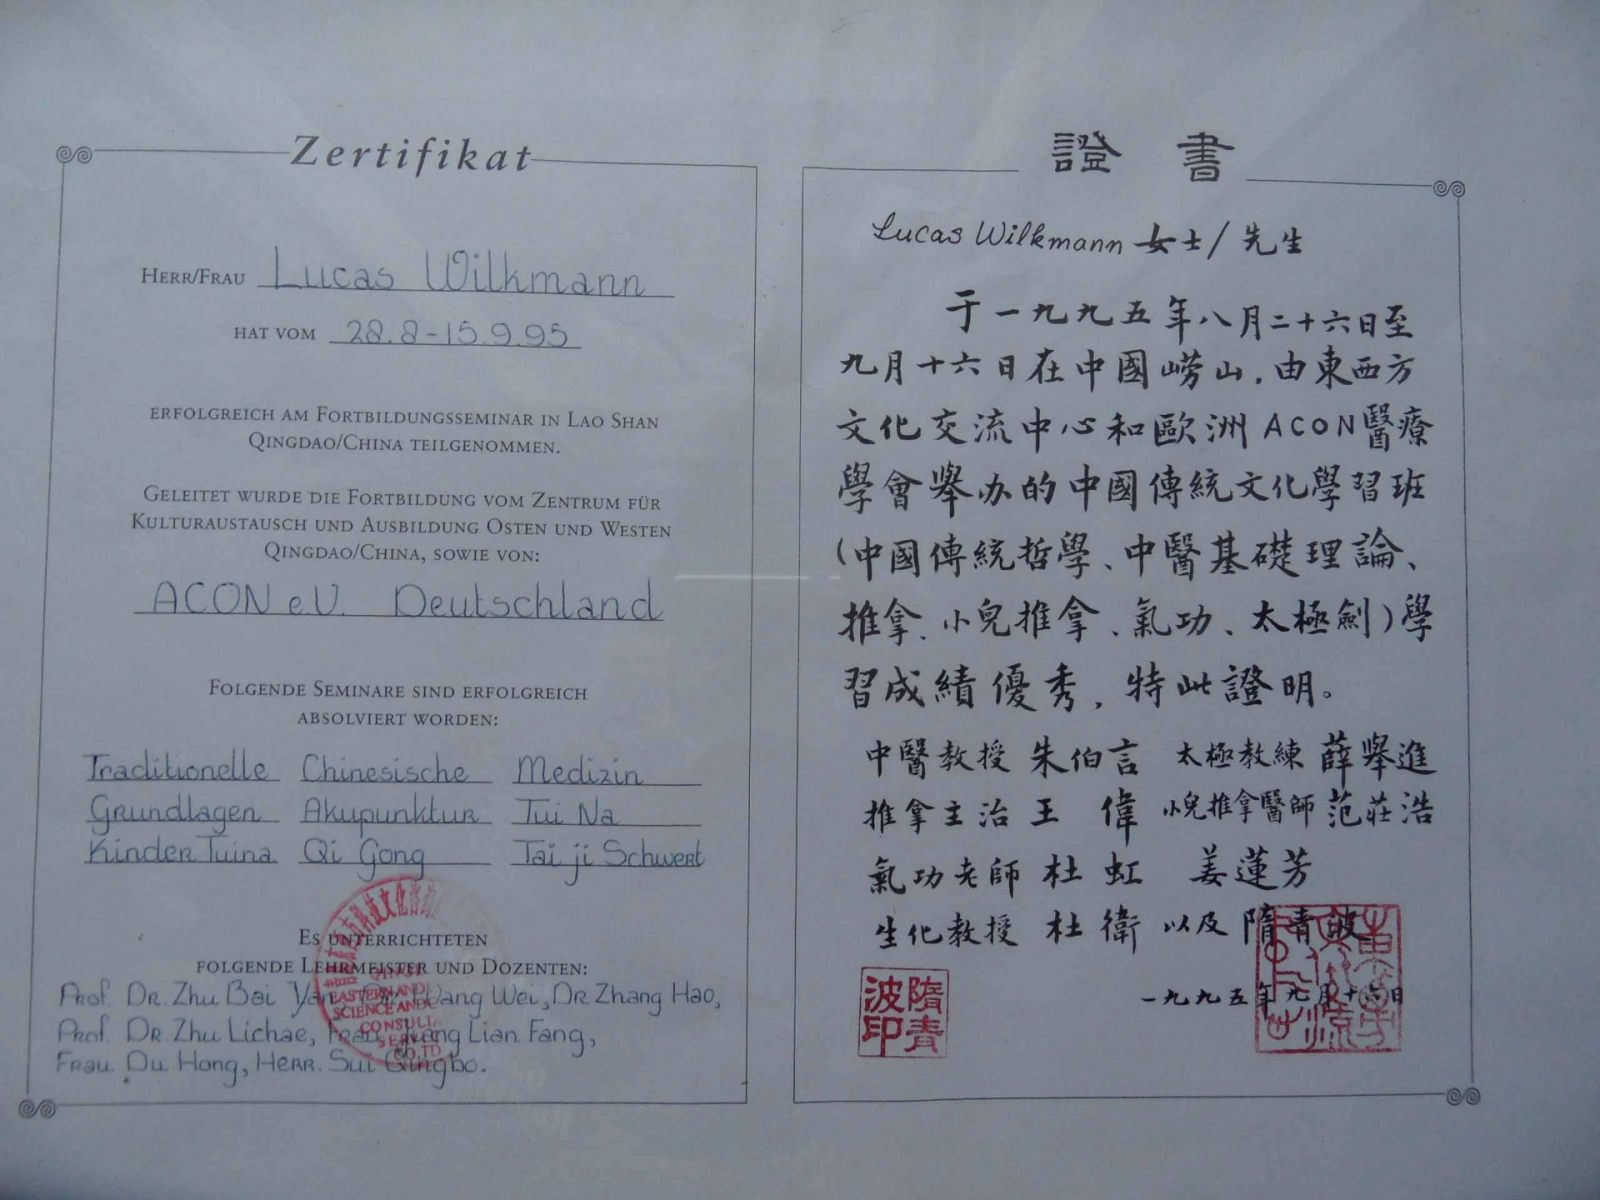 Zertifikat
HERR/FRAU Lucas Wilkmann
HAT VOM 28.8-15.9.95
ERFOLGREICH AM FORTBILDUNGSSEMINAR IN LAO SHAN
QINGDAO/CHINA TEILGENOMMEN.
GELEITET WURDE DIE FORTBILDUNG VOM ZENTRUM FÜR
KULTURAUSTAUSCH UND AUSBILDUNG OSTEN UND WESTEN
QINGDAO/CHINA, SOWIE VON:
ACON e.V. Deutschland
FOLGENDE SEMINARE SIND ERFOLGREICH
ABSOLVIERT WORDEN:
Traditionelle Chinesische Medizin
Grundlagen Akupunktur Tui Na
Kinder Tuina Qi Gong Tai ji Schwert
ES UNTERRICHTETEN
FOLGENDE LEHRMEISTER UND DOZENTEN:
Prof. Dr. Zhu Bai Wang Wei, Dr Zhang Hao,
Prof. Dr. Zhu Lichae, Frau Lian Fang,
Frau Du Hong, Herr. Sui Qingbo.
EASTERN AND
SCIENCE AND
CONSULT
SERV
CO.LTD
證書
Lucas Wilkmann 女士/先生
于一九九五年八月二十六日至
九月十六日在中國嶗山,由東西方
文化交流中心和歐洲ACON醫療
學會舉办的中國傳統文化學習班
(中國傳統哲學、中醫基礎理論、
推拿、小兒推拿、氣功、太極劍)學
習成績優秀,特此證明。
中醫教授 朱伯言 太極教練 薛舉進
推拿主治 王偉 小兒推拿醫師 范莊浩
氣功老師 杜虹 姜蓮芳
生化教授 杜衛 以及 隋青波
一九九五年九月十六日
隋青
波印